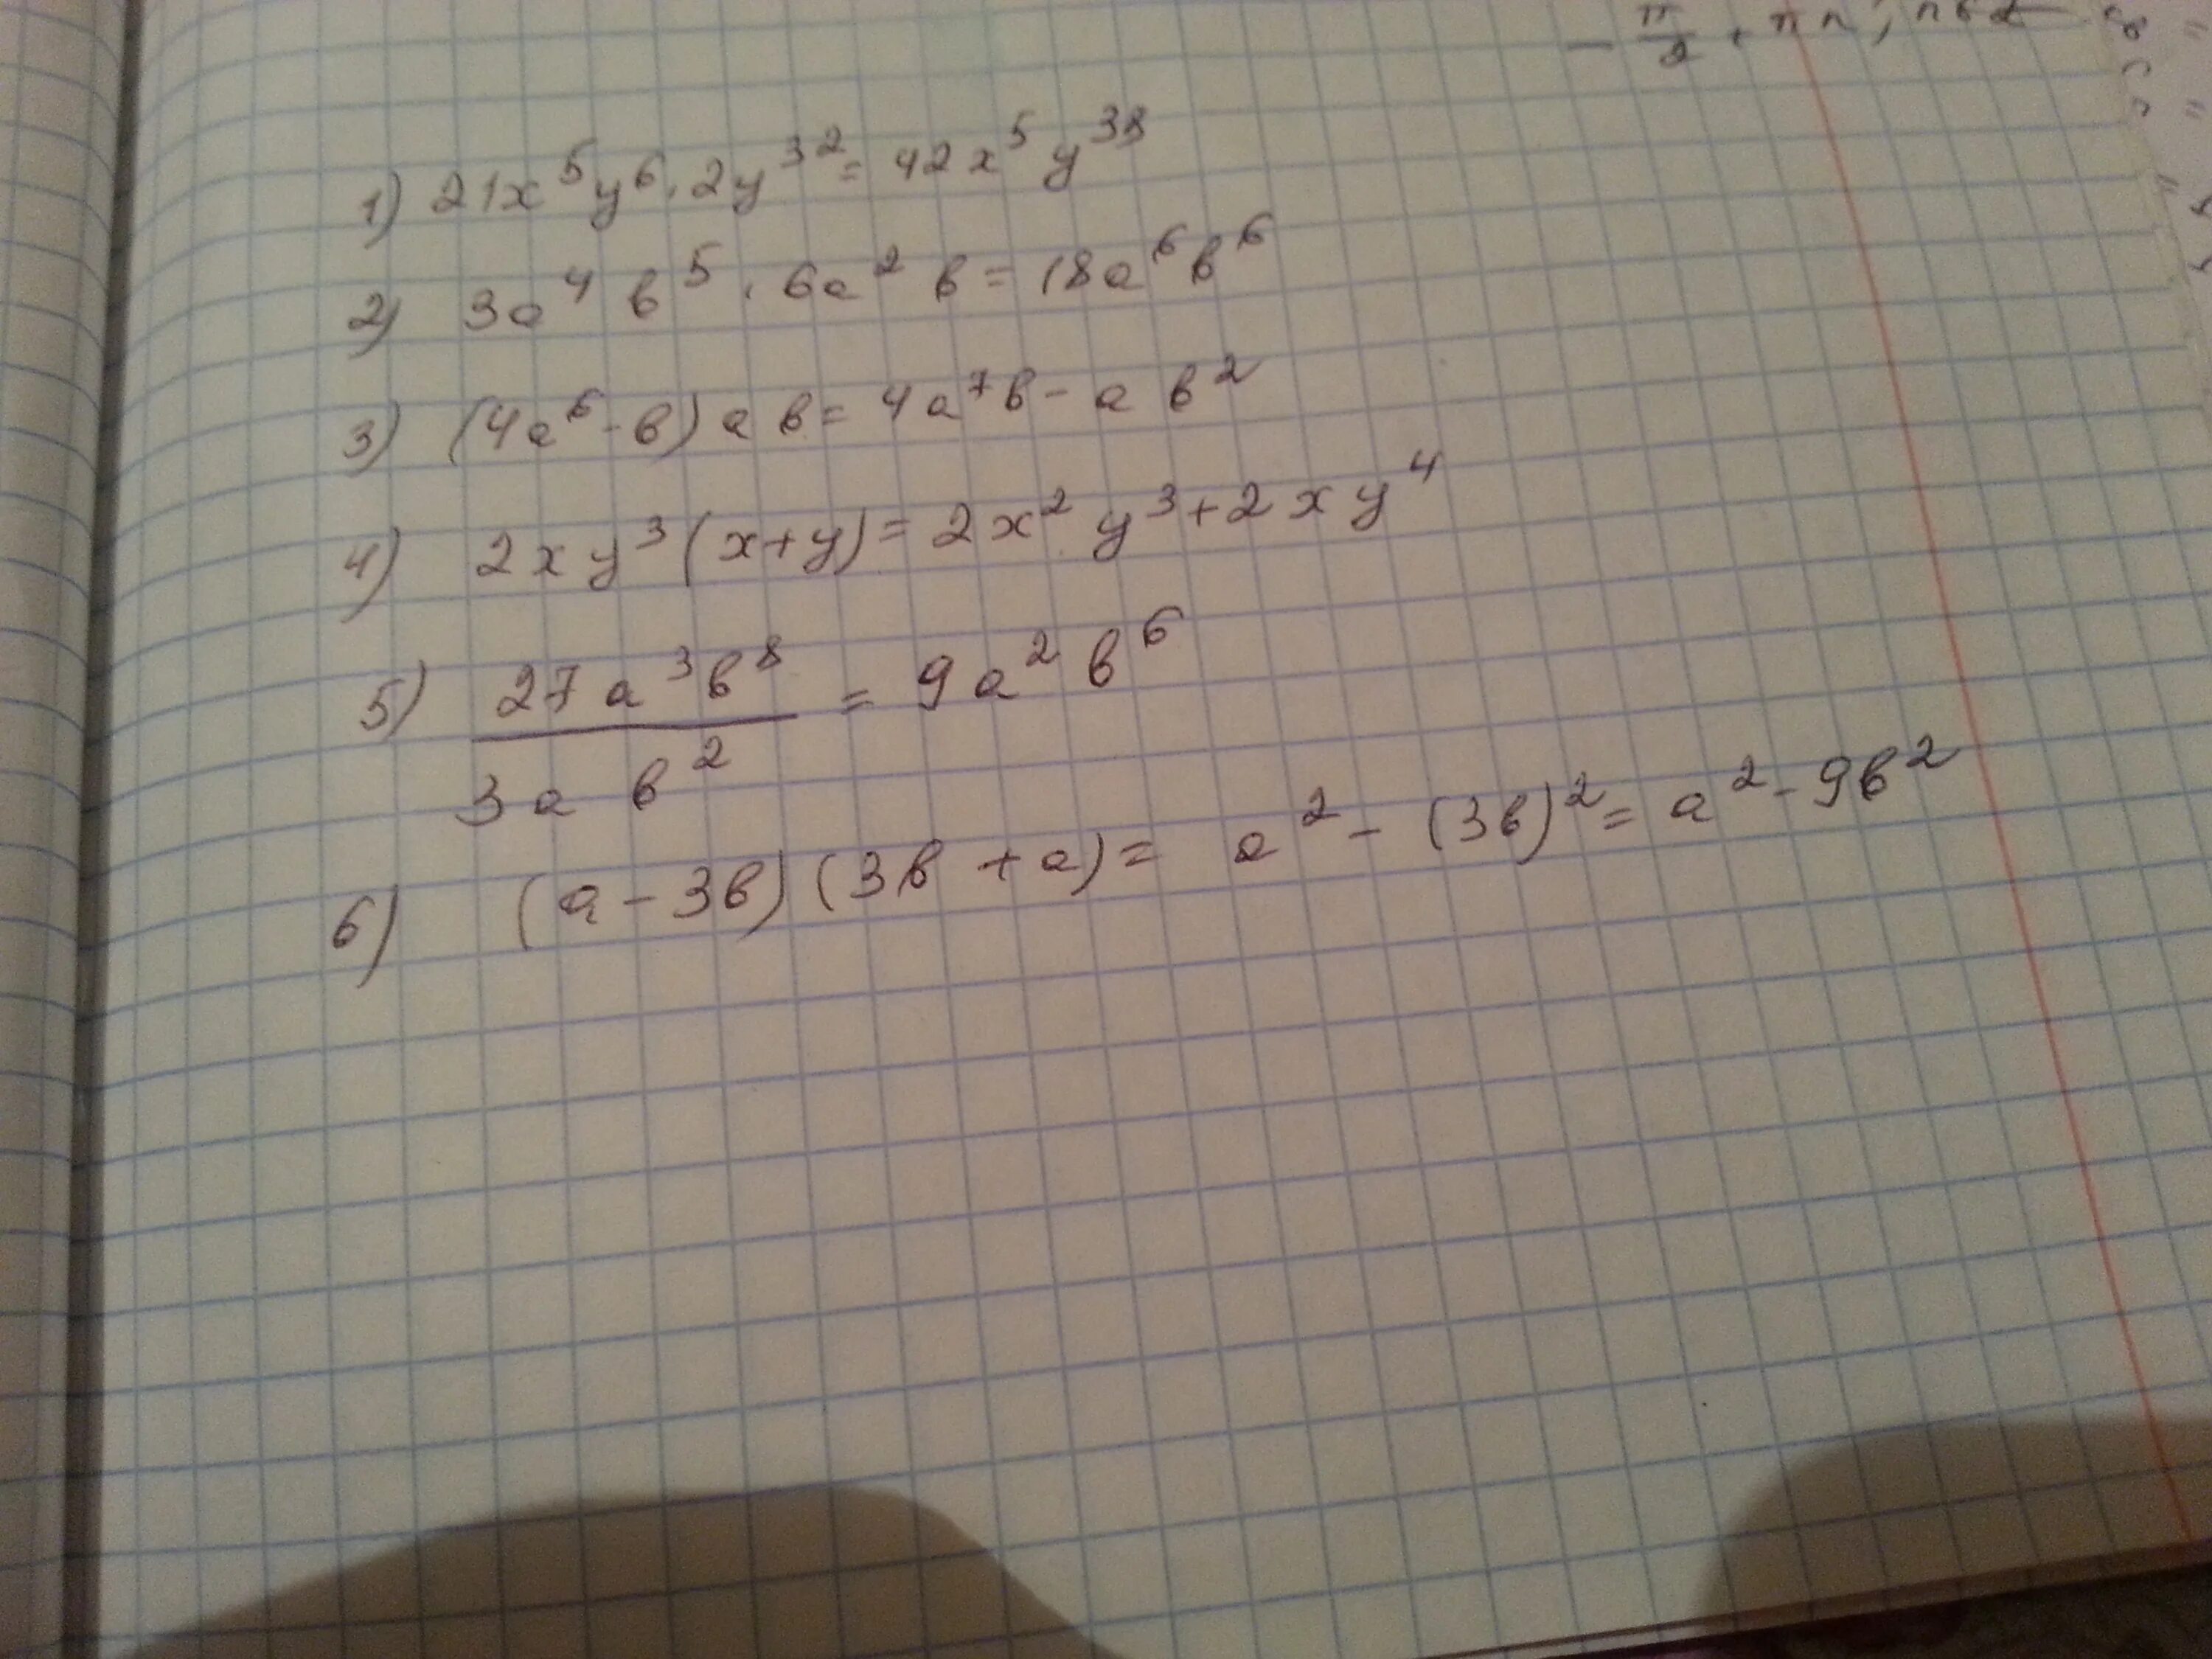 - π/2 + πn, n
1) 21x⁵y⁶ · 2y³² = 42x⁵y³⁸
2) 3a⁴ в⁵ · 6a² в = 18a⁶в⁶
3) (4a⁶ - в) a в = 4a⁷в - a в²
4) 2xy³(x+y) = 2x²y³ + 2xy⁴
5) 27a³в⁸ / 3aв² = 9a²в⁶
6) (a - 3в)(3в + a) = a² - (3в)² = a² - 9в²